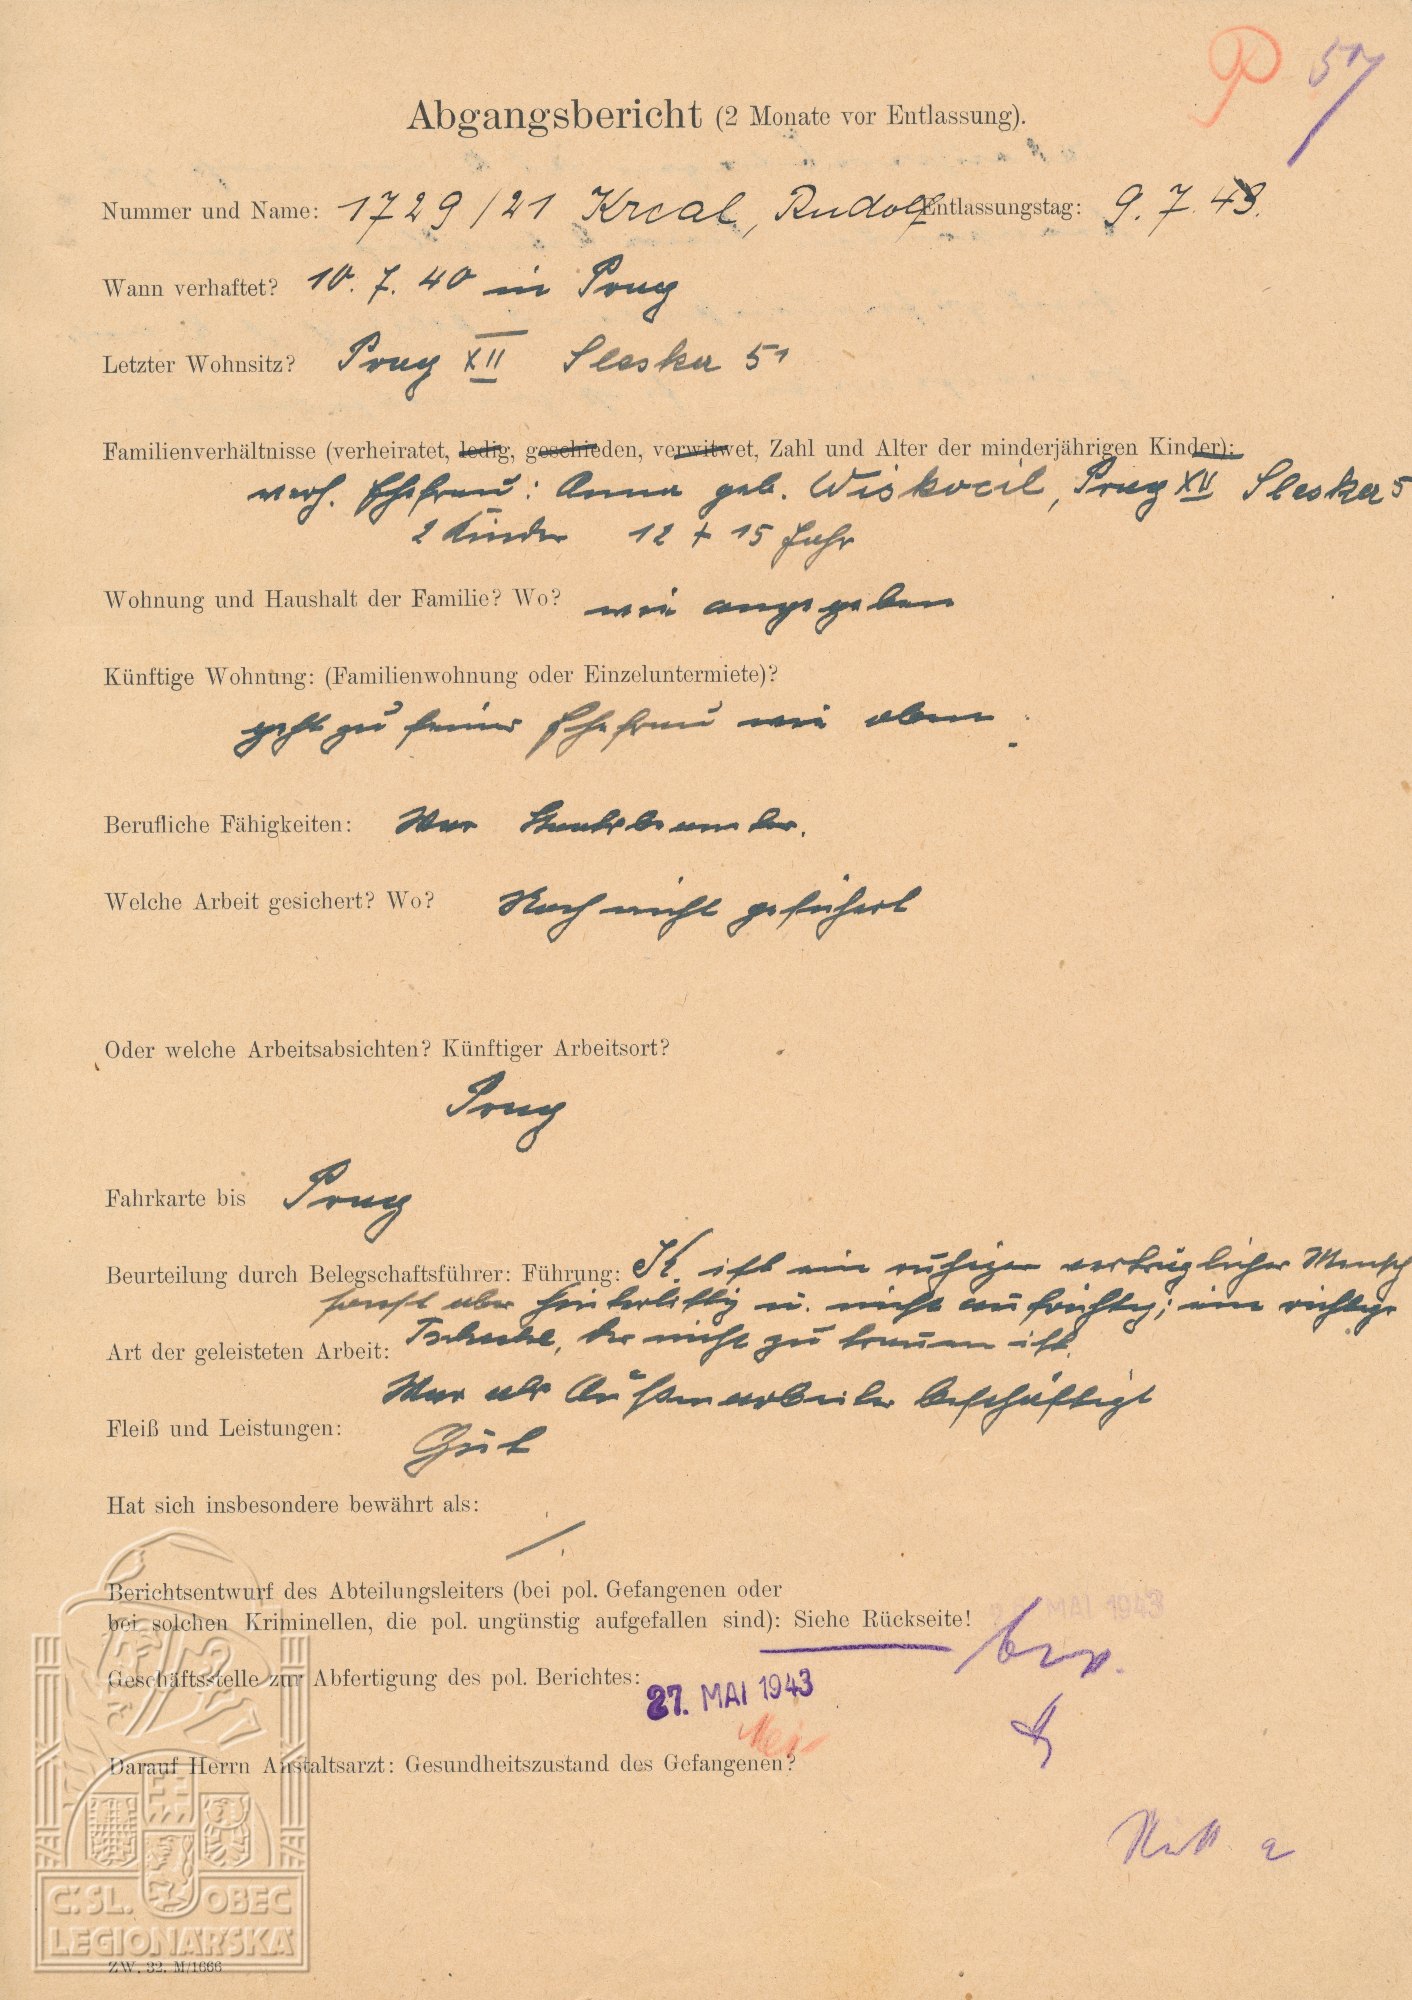 P 57
Abgangsbericht (2 Monate vor Entlassung).
Nummer und Name: 1729/21 Krcal, Rudolf Entlassungstag: 9. 7. 43.
Wann verhaftet? 10. 7. 40 in Prag
Letzter Wohnsitz? Prag XII Slesker 51
Familienverhältnisse (verheiratet, ledig, geschieden, verwitwet, Zahl und Alter der minderjährigen Kinder):
verh. Ehefrau: Anna geb. Wiskocil, Prag XII Slesker 5
2 Kinder 12 + 15 Jahr
Wohnung und Haushalt der Familie? Wo? wie angegeben
Künftige Wohnung: (Familienwohnung oder Einzeluntermiete)?
geht zu seiner Ehefrau wie oben.
Berufliche Fähigkeiten: War Staatsbeamter.
Welche Arbeit gesichert? Wo? Noch nicht gesichert
Oder welche Arbeitsabsichten? Künftiger Arbeitsort?
Prag
Fahrkarte bis Prag
Beurteilung durch Belegschaftsführer: Führung: K. ist ein ruhiger verträglicher Mensch
sonst aber hinterlistig u. nicht aufrichtig; ein richtiger
Art der geleisteten Arbeit: Tscheche, der nicht zu trauen ist.
War als Außenarbeiter beschäftigt
Fleiß und Leistungen: Gut
Hat sich insbesondere bewährt als: /
Berichtsentwurf des Abteilungsleiters (bei pol. Gefangenen oder
bei solchen Kriminellen, die pol. ungünstig aufgefallen sind): Siehe Rückseite! MAI 1943
Geschäftsstelle zur Abfertigung des pol. Berichtes: 27. MAI 1943
Darauf Herrn Anstaltsarzt: Gesundheitszustand des Gefangenen?
Č.SL. OBEC
LEGIONÁŘSKÁ
ZW. 32. M/1666